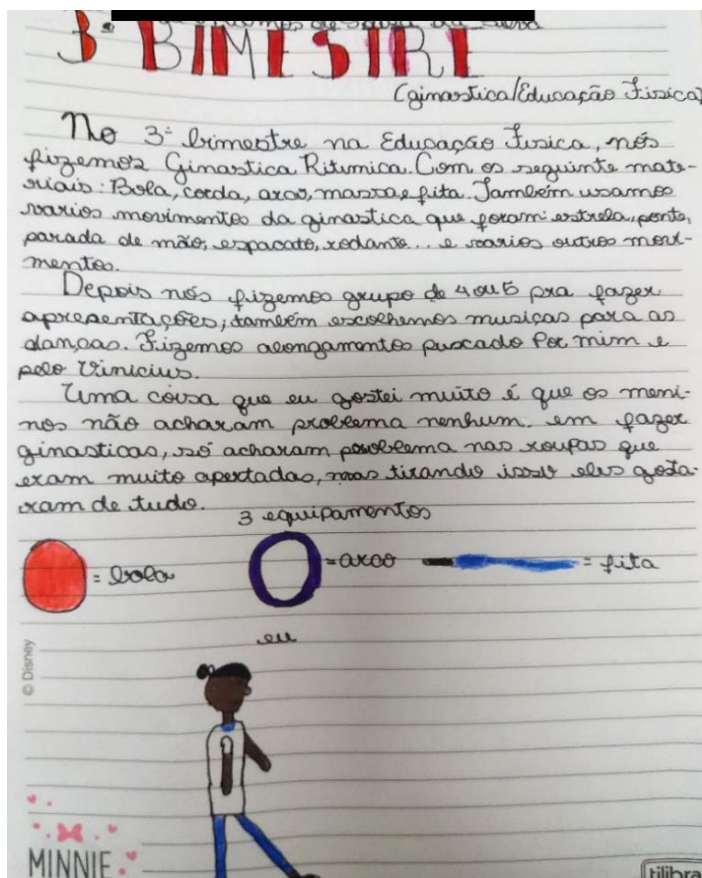 3º BIMESTRE
(ginastica/Educação Fisica)
No 3º bimestre na Educação Fisica, nós
fizemos Ginastica Ritimica. Com os seguinte mate-
riais: Bola, corda, arco, massa e fita. Também usamos
varios movimentos da ginastica que foram: estrela, ponte,
parada de mão, espacato, rodante... e varios outros movi-
mentos.
Depois nós fizemos grupo de 4 ou 5 pra fazer
apresentações, também escolhemos musicas para as
danças. Fizemos alongamentos puxcado Por mim e
pelo Vinicius.
Uma coisa que eu gostei muito é que os meni-
nos não acharam problema nenhum em fazer
ginasticas, só acharam problema nas roupas que
eram muito apertadas, mas tirando isso eles gosta-
ram de tudo.
3 equipamentos
= bola
= arco
= fita
eu
© Disney
MINNIE
tilibra